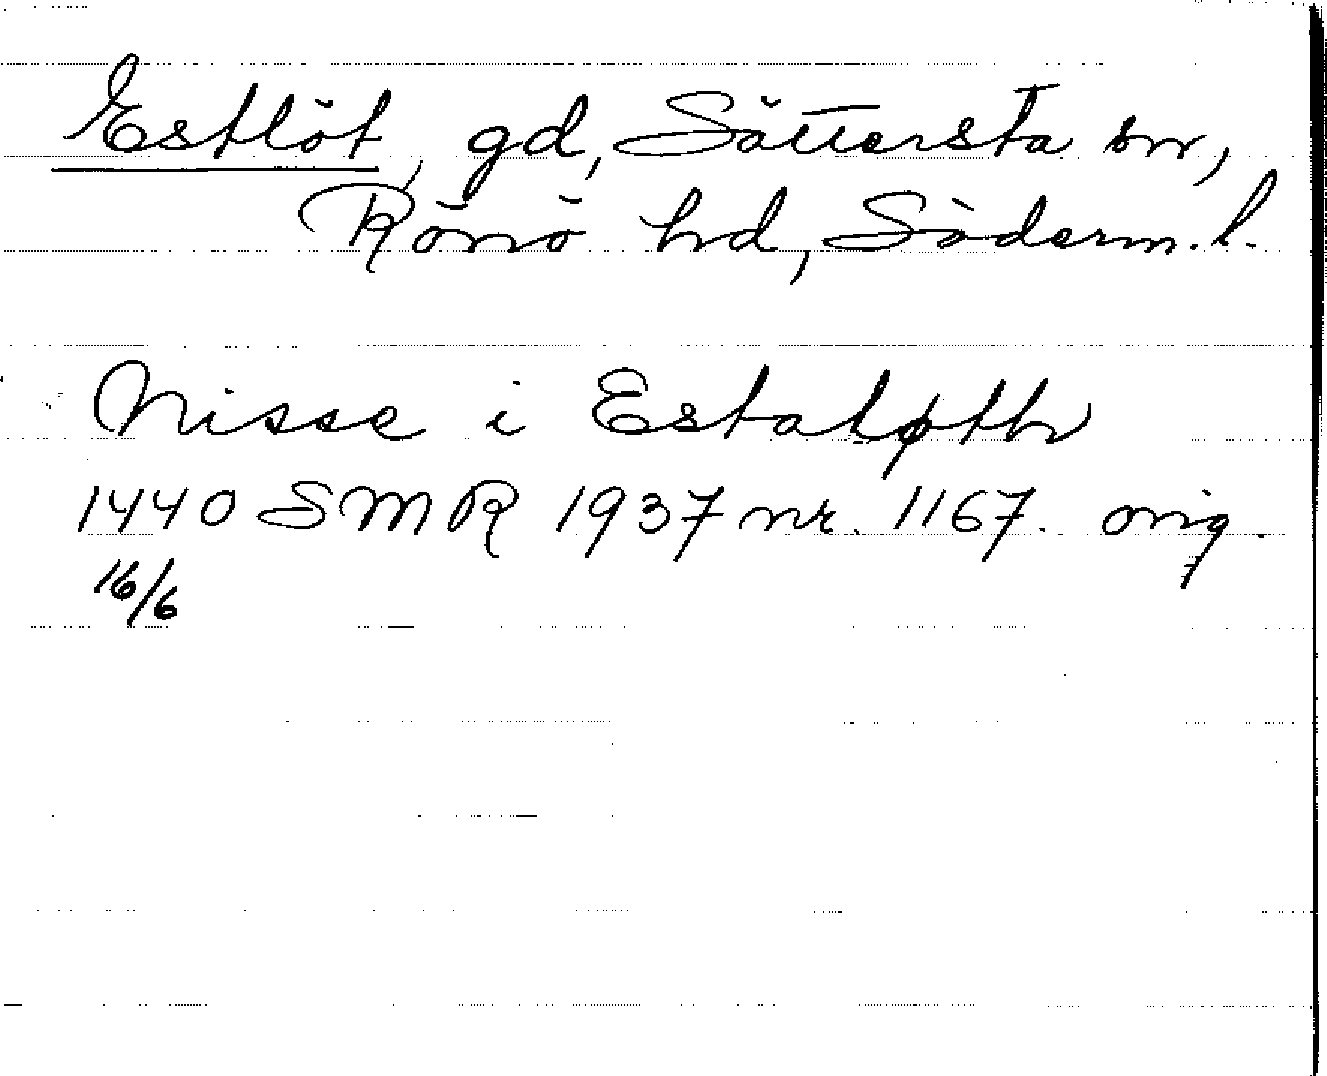 Estlöt, gd, Sättersta sn,
Rönö hd, Söderm. l.
Nisse i Estaløth
1440 SMR 1937 nr. 1167. orig.
16/6